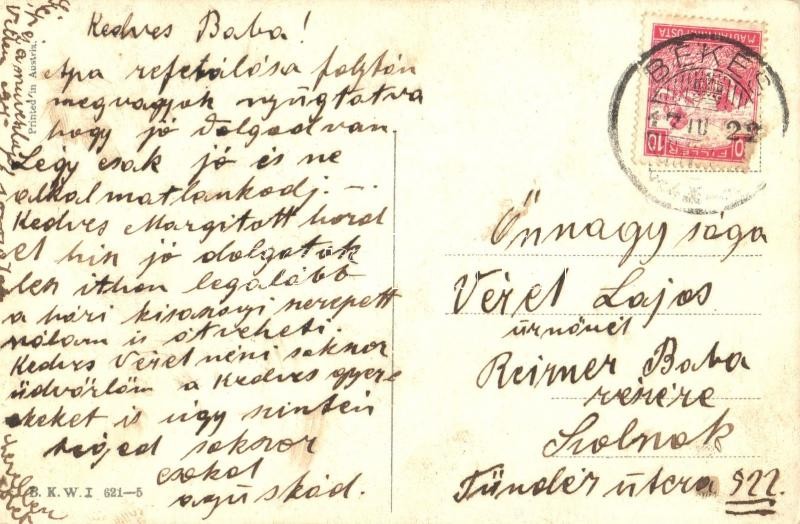 Kedves Baba!
Apa referálása folytán
megvagyok nyugtatva
hogy jó dolgod van.
Légy csak jó és ne
alkalmatlankodj. —
Kedves Margitott hord
el hisz jó dolgotok
lesz itthon legalább
a házi kisasszonyi szerepett
nálam is átveheti.
Kedves Vérel néni sokszor
üdvözlöm a Kedves gyere
keket is úgy szintén
téged sokszor
csokol
aguskád.
B. K. W. I 621—5
Printed in Austria.
MAGYAR KIR. POSTA
10 FILLÉR 10
BÉKÉS
17 IU 22
Önnagysága
Vérel Lajos
úrnőnél
Reisner Baba
részére
Szolnok
Tündér útcza 922.